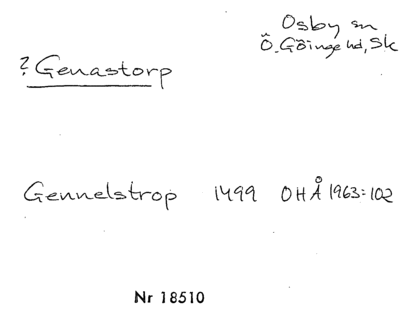 Osby sn
Ö. Göinge hd, Sk
? Genastorp
Gennelstrop 1499 OHÅ 1963:102
Nr 18510